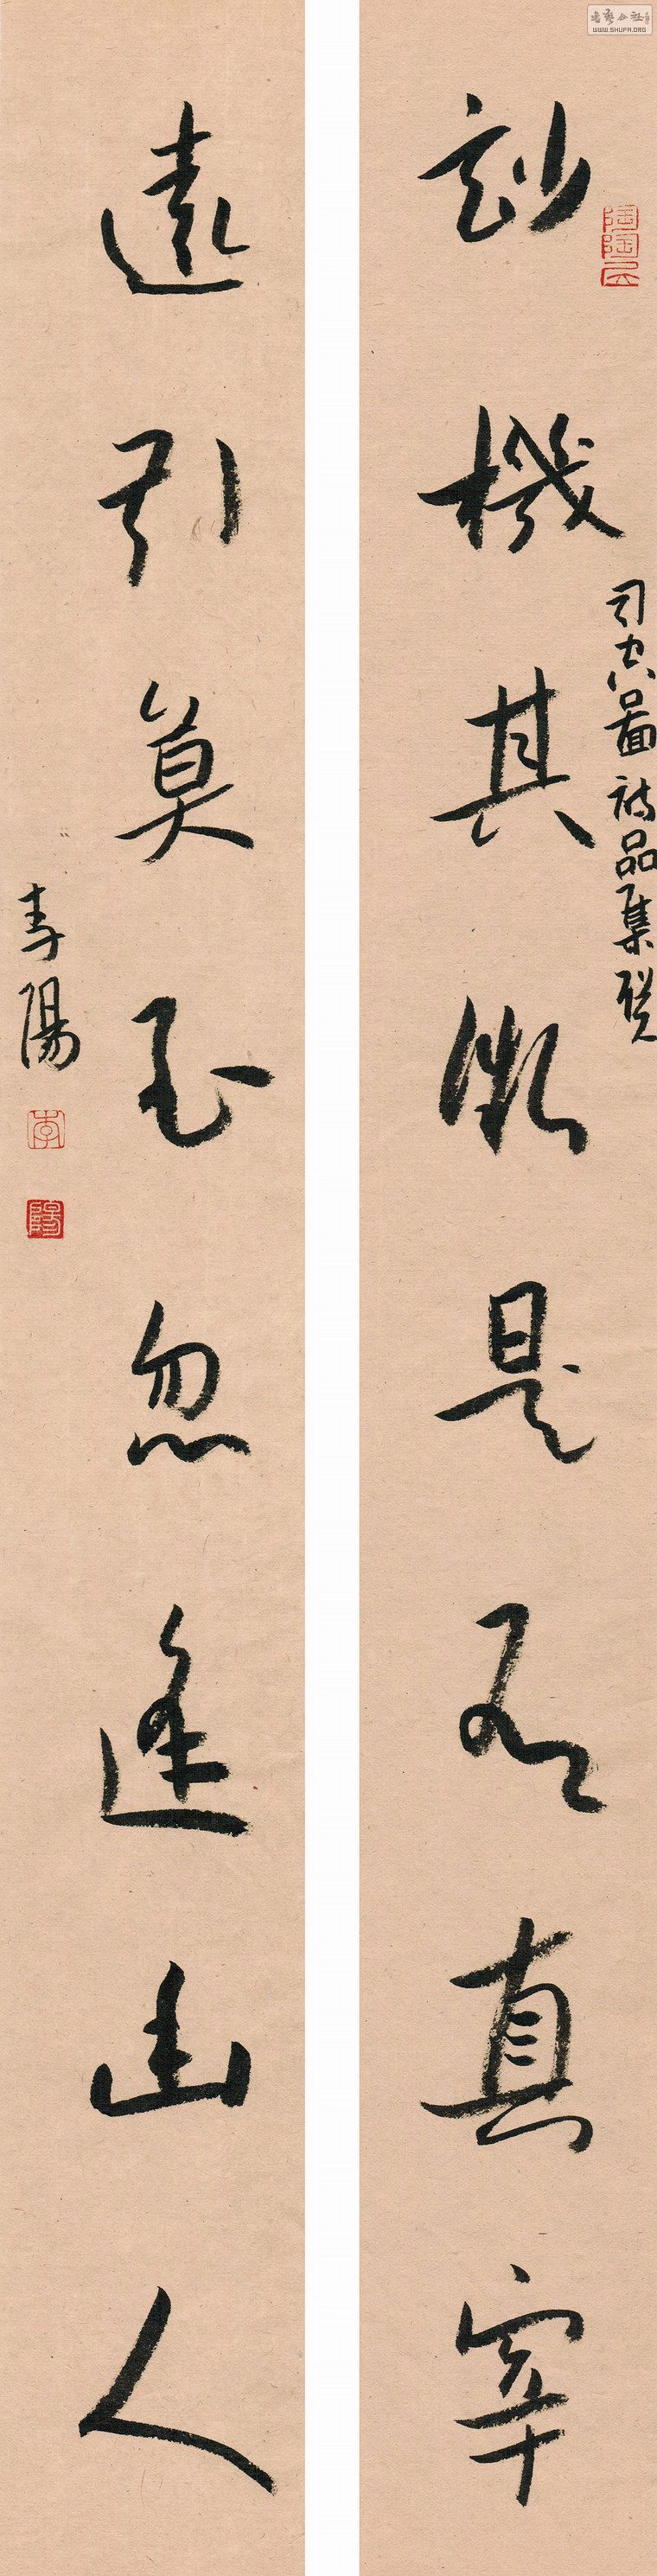 玅機其微是有真宰
司空圖詩品集聯
遠引莫至忽逢幽人
李陽
李
陽
WWW.SHUFA.ORG